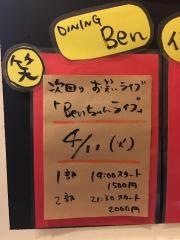 DINING
Ben
笑
次回の お笑いライブ
「Benちゃんライブ」
4/11 (火)
1部 19:00スタート
1500円
2部 21:30スタート
2000円